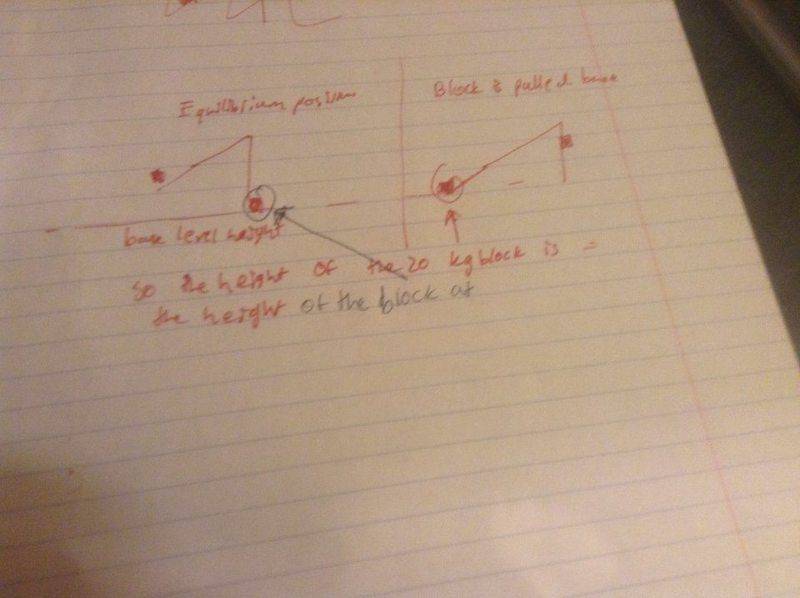 Equilibrium position
Block is pulled
base level height
so the height of the 20 kg block is =
the height of the block at